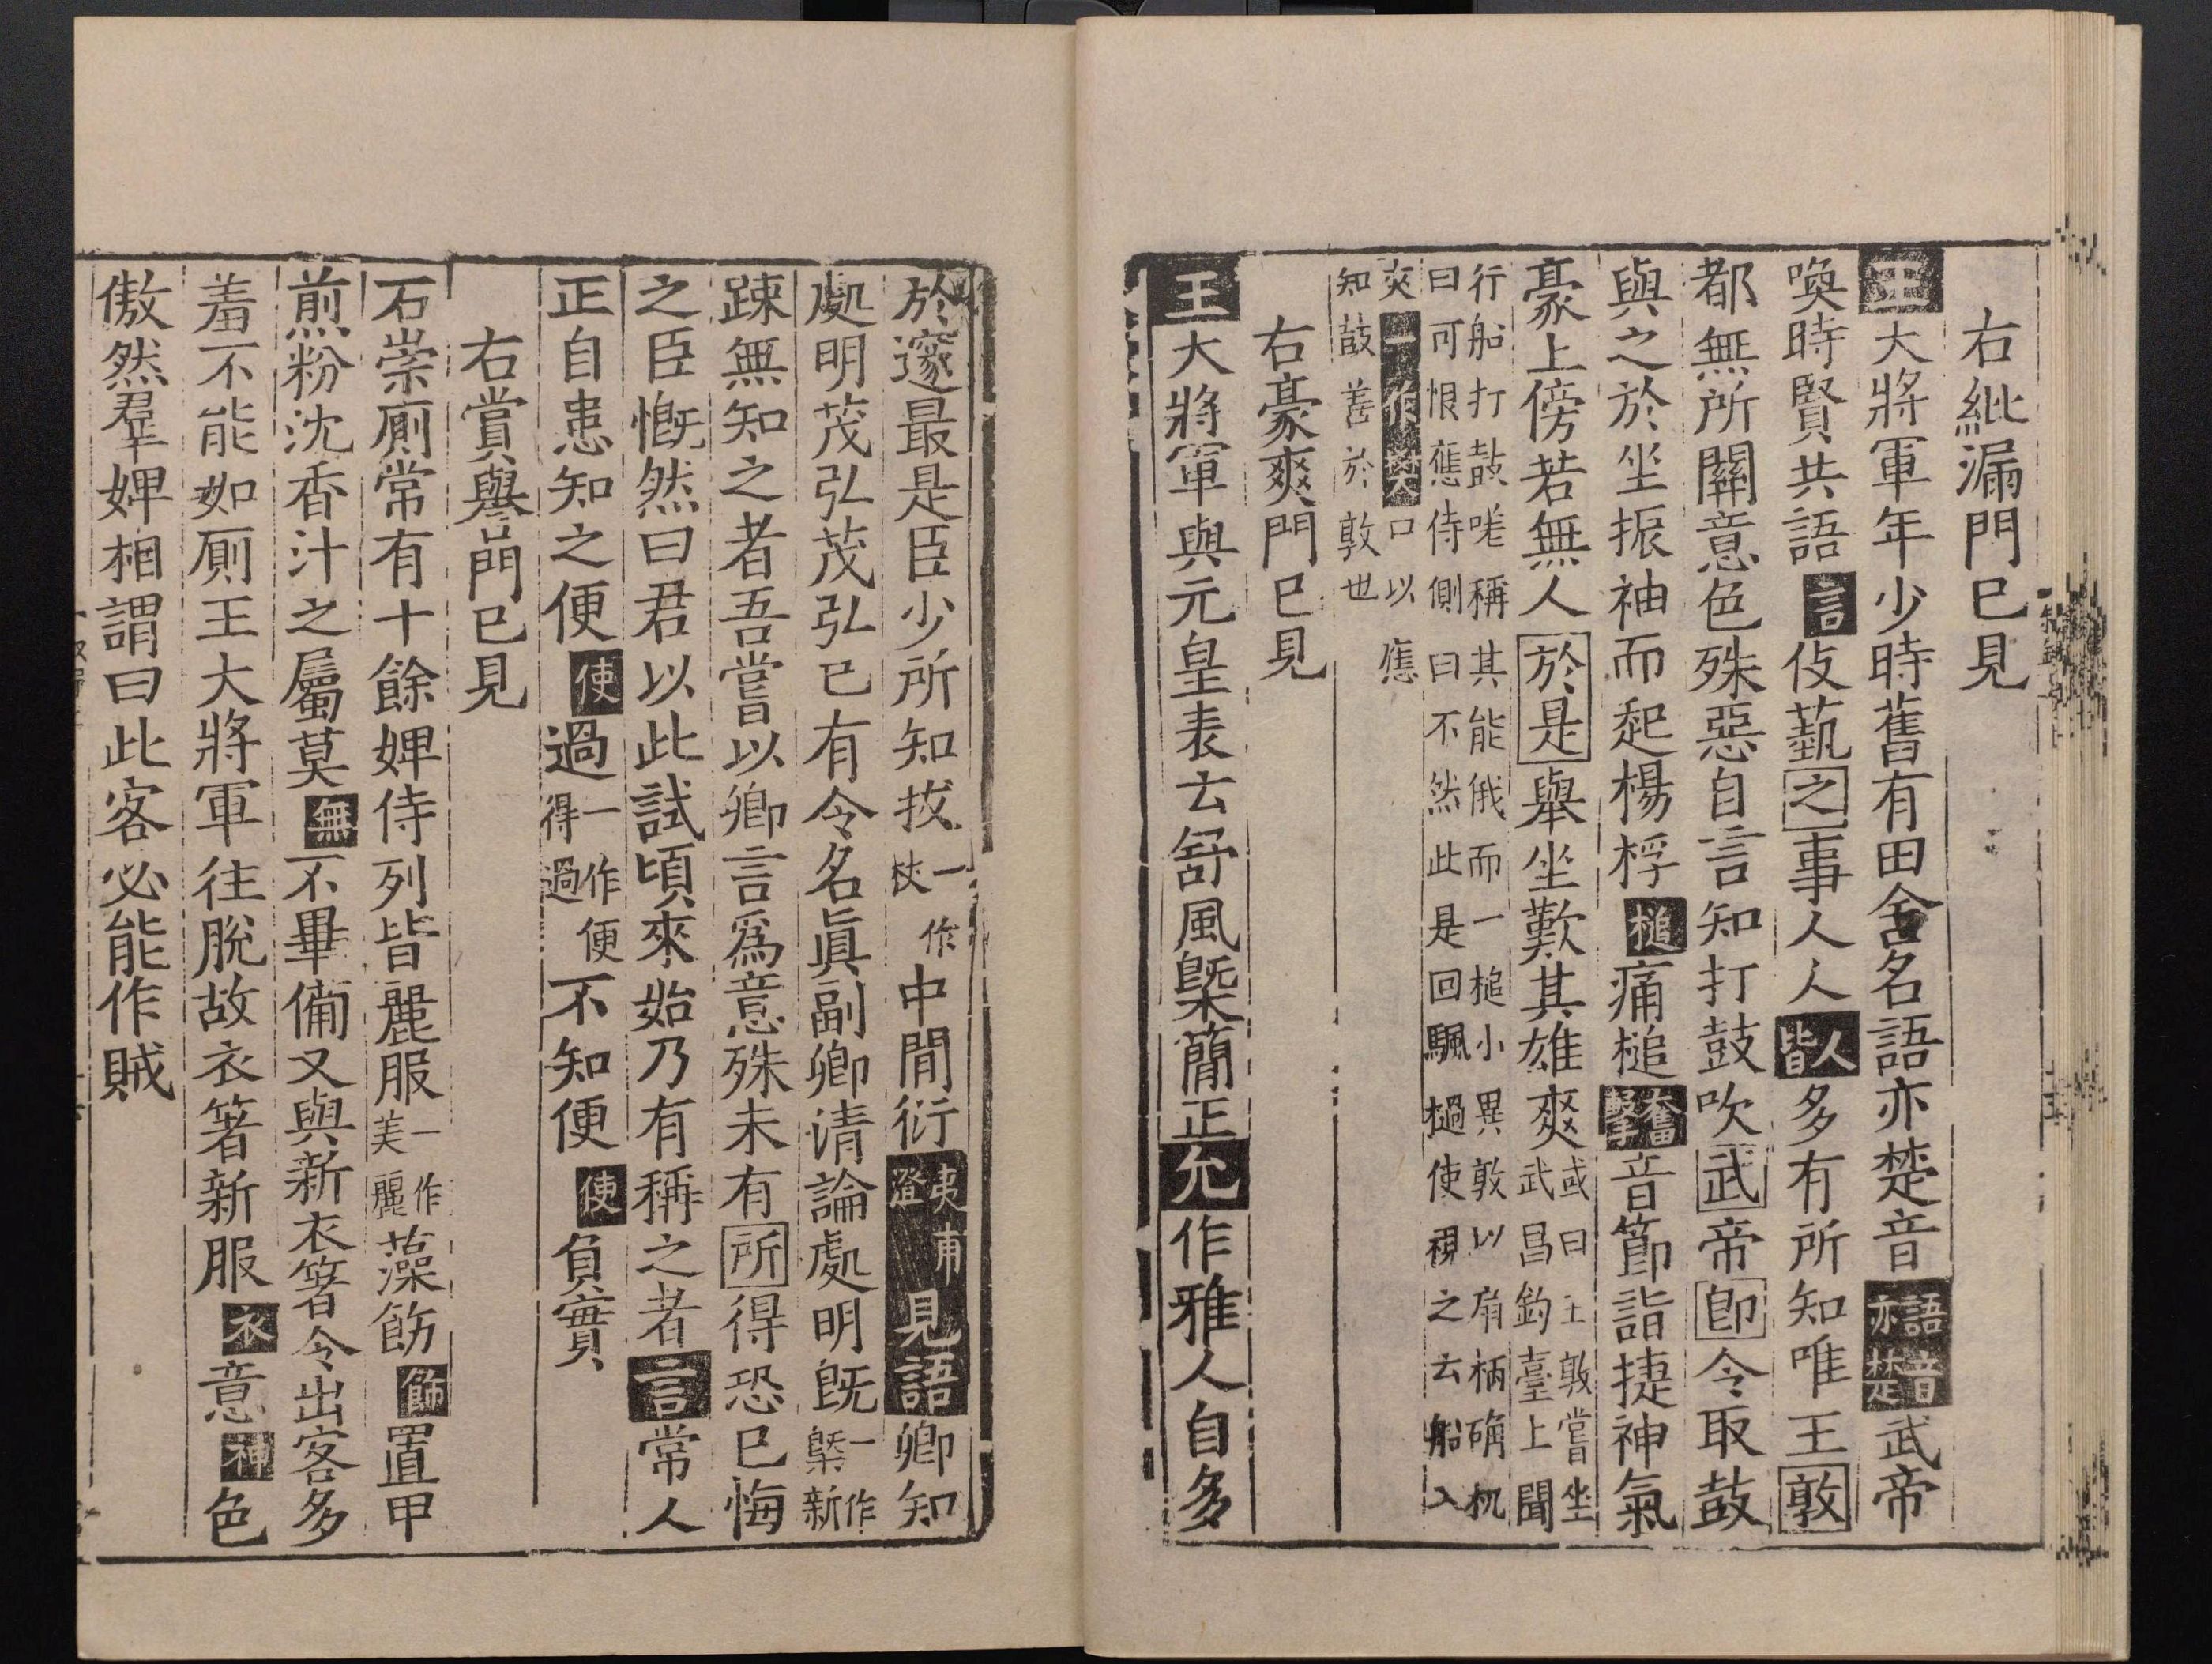 右紕漏門已見
王大將軍年少時舊有田舍名語亦楚音語音亦楚武帝
喚時賢共語言伎藝之事人人人皆多有所知唯王敦
都無所關意色殊惡自言知打鼓吹武帝卽令取鼓
與之於坐振袖而起楊桴槌痛槌奮擊音節諧捷神氣
豪上傍若無人於是舉坐歎其雄爽或曰王敦嘗坐武昌釣臺上聞
行船打鼓嗟稱其能俄而一槌小異敦以扇柄硧机
曰可恨應侍側曰不然此是回颿檛使視之云船入
夾一作樊口以應
知鼓善於敦也
右豪爽門已見
王大將軍與元皇表云舒風槩簡正允作雅人自多
於邃最是臣少所知拔一作杖中閒衍夷甫澄見語卿知
處明茂弘茂弘已有令名眞副卿清論處明旣一作槩新
踈無知之者吾嘗以卿言爲意殊未有所得恐已悔
之臣慨然曰君以此試頃來始乃有稱之者言常人
正自患知之便使過一作便得過不知便使負實
右賞譽門已見
石崇厠常有十餘婢侍列皆麗服一作美麗藻飭飾置甲
煎粉沈香汁之屬莫無不畢備又與新衣箸令出客多
羞不能如厠王大將軍往脫故衣箸新服衣意神色
傲然羣婢相謂曰此客必能作賊